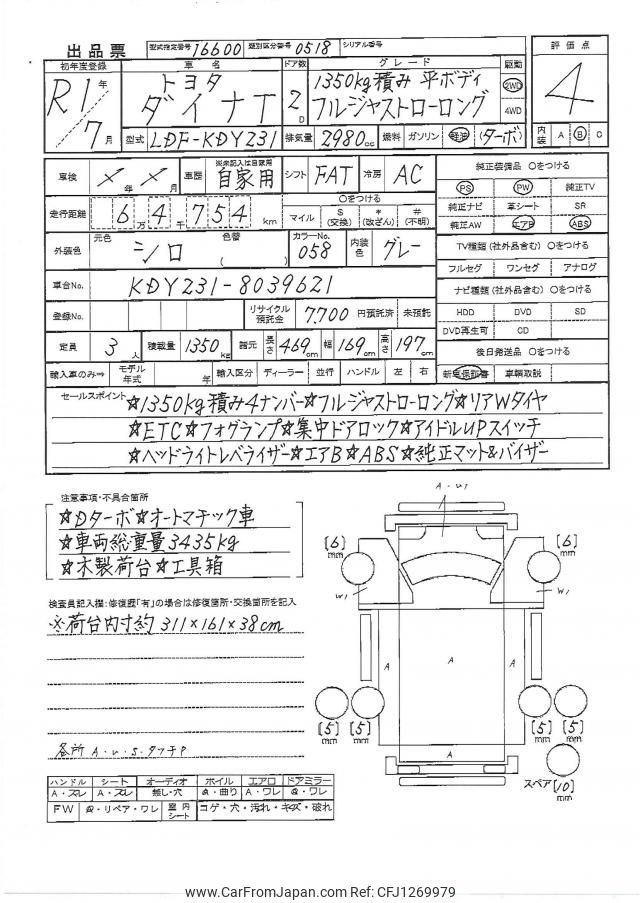 出品票 型式指定番号 16600 類別区分番号 0518 シリアル番号
初年度登録 車名 ドア数 グレード 駆動 評価点
R1年 トヨタ 1350kg積み 平ボディ 2WD 4
7月 ダイナT 2D フルジャストローロング 4WD
型式 LDF-KDY231 排気量 2980cc 燃料 ガソリン 軽油 (ターボ) 内装 A B C
車検 メ年 メ月 車歴 ※未記入は自家用 自家用 シフト FAT 冷房 AC
純正装備品 ○をつける
PS PW 純正TV
走行距離 6万4千754km ○をつける マイル S(交換) *(改ざん) #(不明)
純正ナビ 革シート SR
純正AW エアB ABS
外装色 元色 シロ 色替 ( ) カラーNo. 058 内装色 グレー
TV種類(社外品含む) ○をつける
フルセグ ワンセグ アナログ
車台No. KDY231-8039621
ナビ種類(社外品含む) ○をつける
登録No. リサイクル預託金 7,700 円預託済 未預託
HDD DVD SD
DVD再生可 CD
定員 3人 積載量 1350kg 諸元 長さ 469cm 幅 169cm 高さ 197cm
後日発送品 ○をつける
輸入車のみ⇒ モデル年式 年 輸入区分 ディーラー 並行 ハンドル 左 右
新車保証書 車輌取説
セールスポイント ☆1350kg積み4ナンバー☆フルジャストローロング☆リアWタイヤ
☆ETC☆フォグランプ☆集中ドアロック☆アイドルUPスイッチ
☆ヘッドライトレベライザー☆エアB☆ABS☆純正マット&バイザー
注意事項・不具合箇所
☆Dターボ☆オートマチック車
☆車両総重量3435kg
☆木製荷台☆工具箱
検査員記入欄:修復歴「有」の場合は修復箇所・交換箇所を記入
※荷台内寸約 311×161×38cm
各所 A・U・S・タッチP
A・U1
[6]mm [6]mm
W1 W1
A A A
[5]mm [5]mm [5]mm [5]mm
A
スペア [10]mm
ハンドル シート オーディオ ホイル エアロ ドアミラー
A・スレ A・スレ 無し・穴 A・曲り A・ワレ A・ワレ
FW A・リペア・ワレ 室内シート コゲ・穴・汚れ・キズ・破れ
www.CarFromJapan.com Ref: CFJ1269979